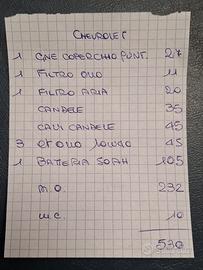 CHEVROLET
1 GNE COPERCHIO PUNT. 27
1 FILTRO OLIO 11
1 FILTRO ARIA 20
CANDELE 35
CAVI CANDELE 45
3 OLIO 10W40 45
1 BATTERIA 50AH 105
M.O. 232
M.C. 10
530